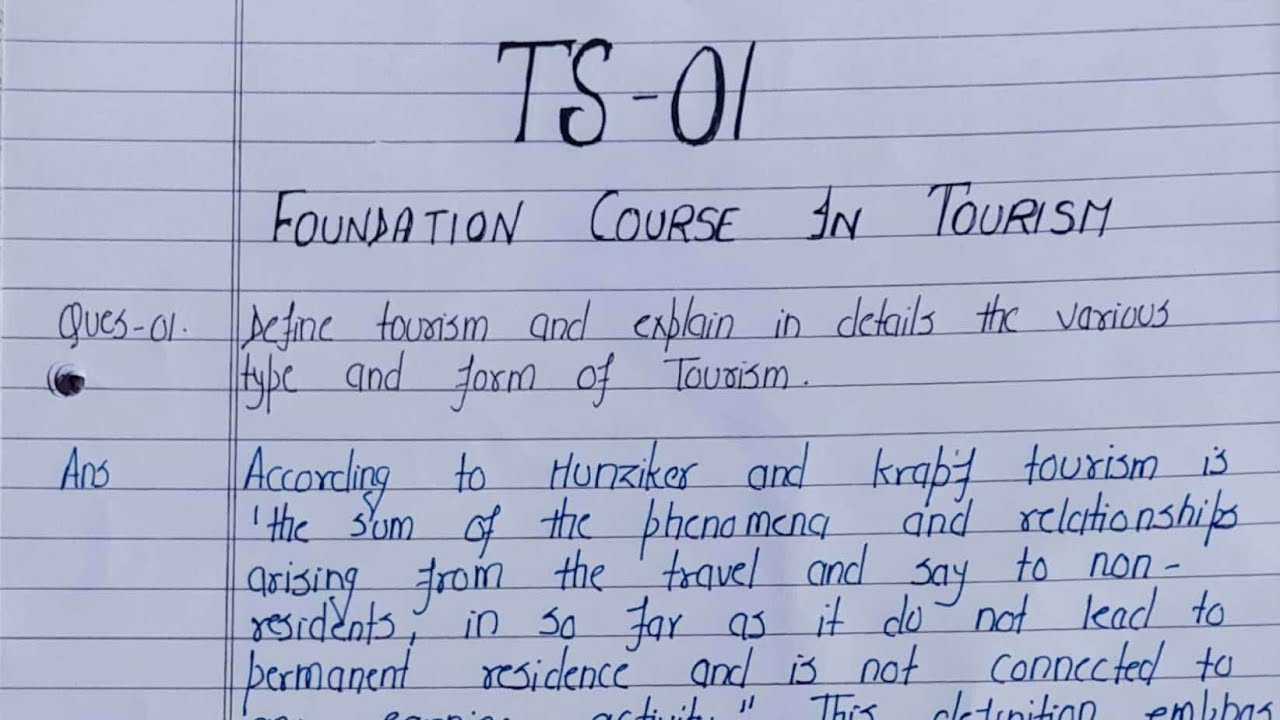 TS-01
FOUNDATION COURSE IN TOURISM
Ques-01. Define tourism and explain in details the various
type and form of Tourism.
Ans According to Hunziker and krapf tourism is
'the sum of the phenomena and relationships
arising from the travel and say to non-
residents, in so far as it do not lead to
permanent residence and is not connected to
activity." This definition